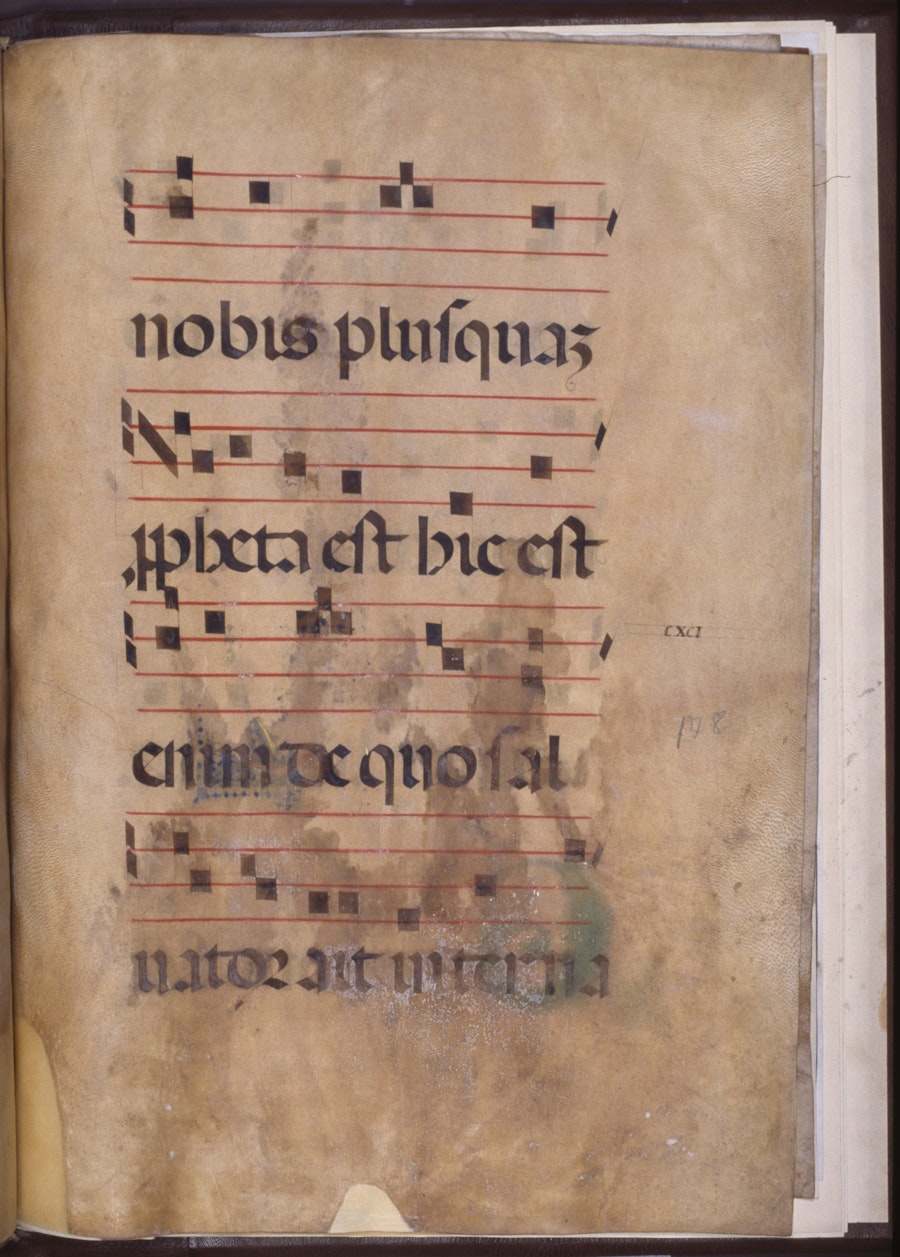 nobis pluſquaꝫ
ꝓpheta eſt hic eſt
enim de quo ſal
cxci
178
uator ait inter na